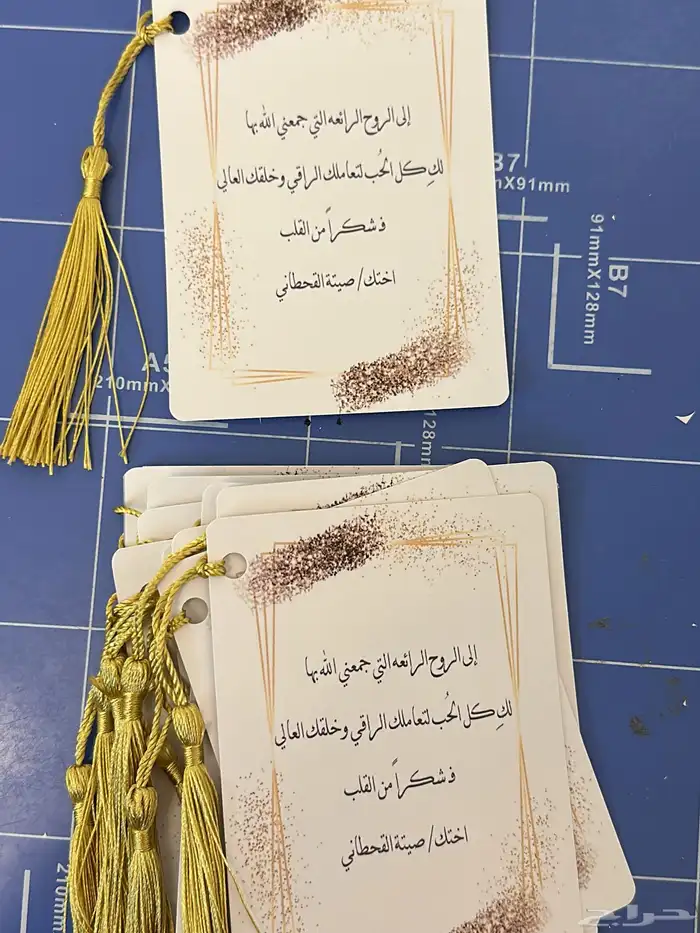 إلى الروح الرائعه التي جمعني الله بها
لكِ كل الحُب لتعاملك الراقي وخلقك العالي
فشكراً من القلب
اختك/ صيتة القحطاني
B7
mmX91mm
B7
91mmX128mm
A5
210mmX
128mm
إلى الروح الرائعه التي جمعني الله بها
لكِ كل الحُب لتعاملك الراقي وخلقك العالي
فشكراً من القلب
اختك/ صيتة القحطاني
210mm
حراج